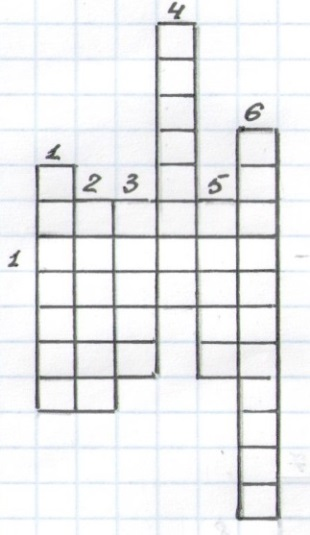 4
6
1
2 3 5
1